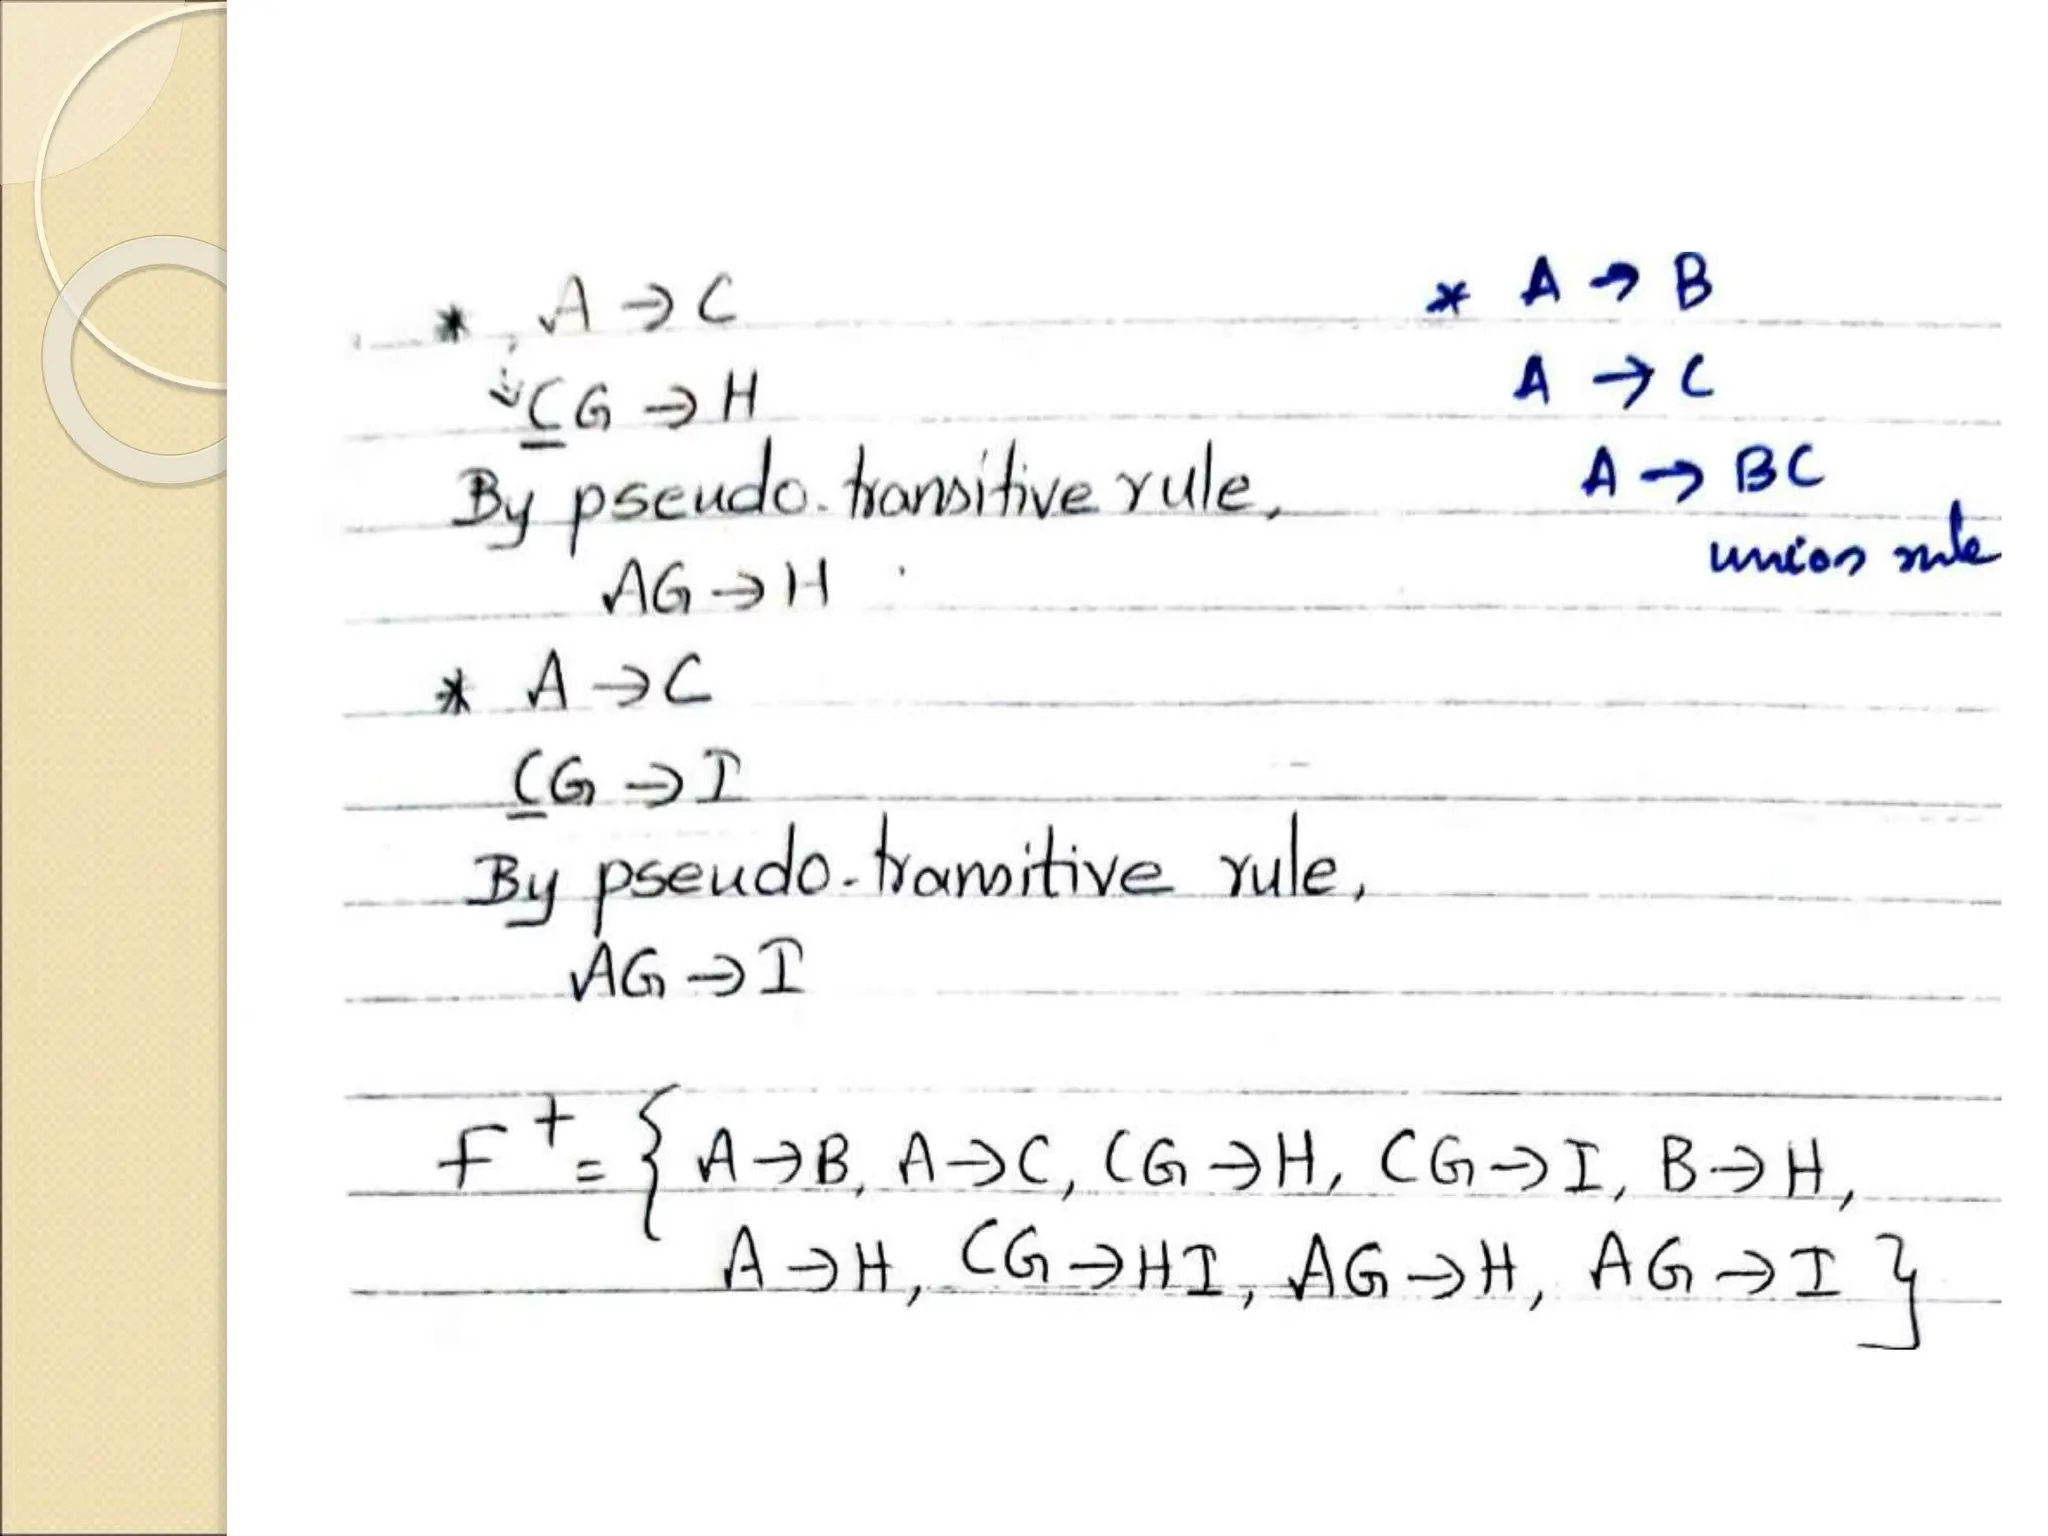 * A → C
CG → H
By pseudo-transitive rule,
AG → H
* A → C
CG → I
By pseudo-transitive rule,
AG → I
* A → B
A → C
A → BC
union rule
F⁺ = { A→B, A→C, CG→H, CG→I, B→H,
A→H, CG→HI, AG→H, AG→I }